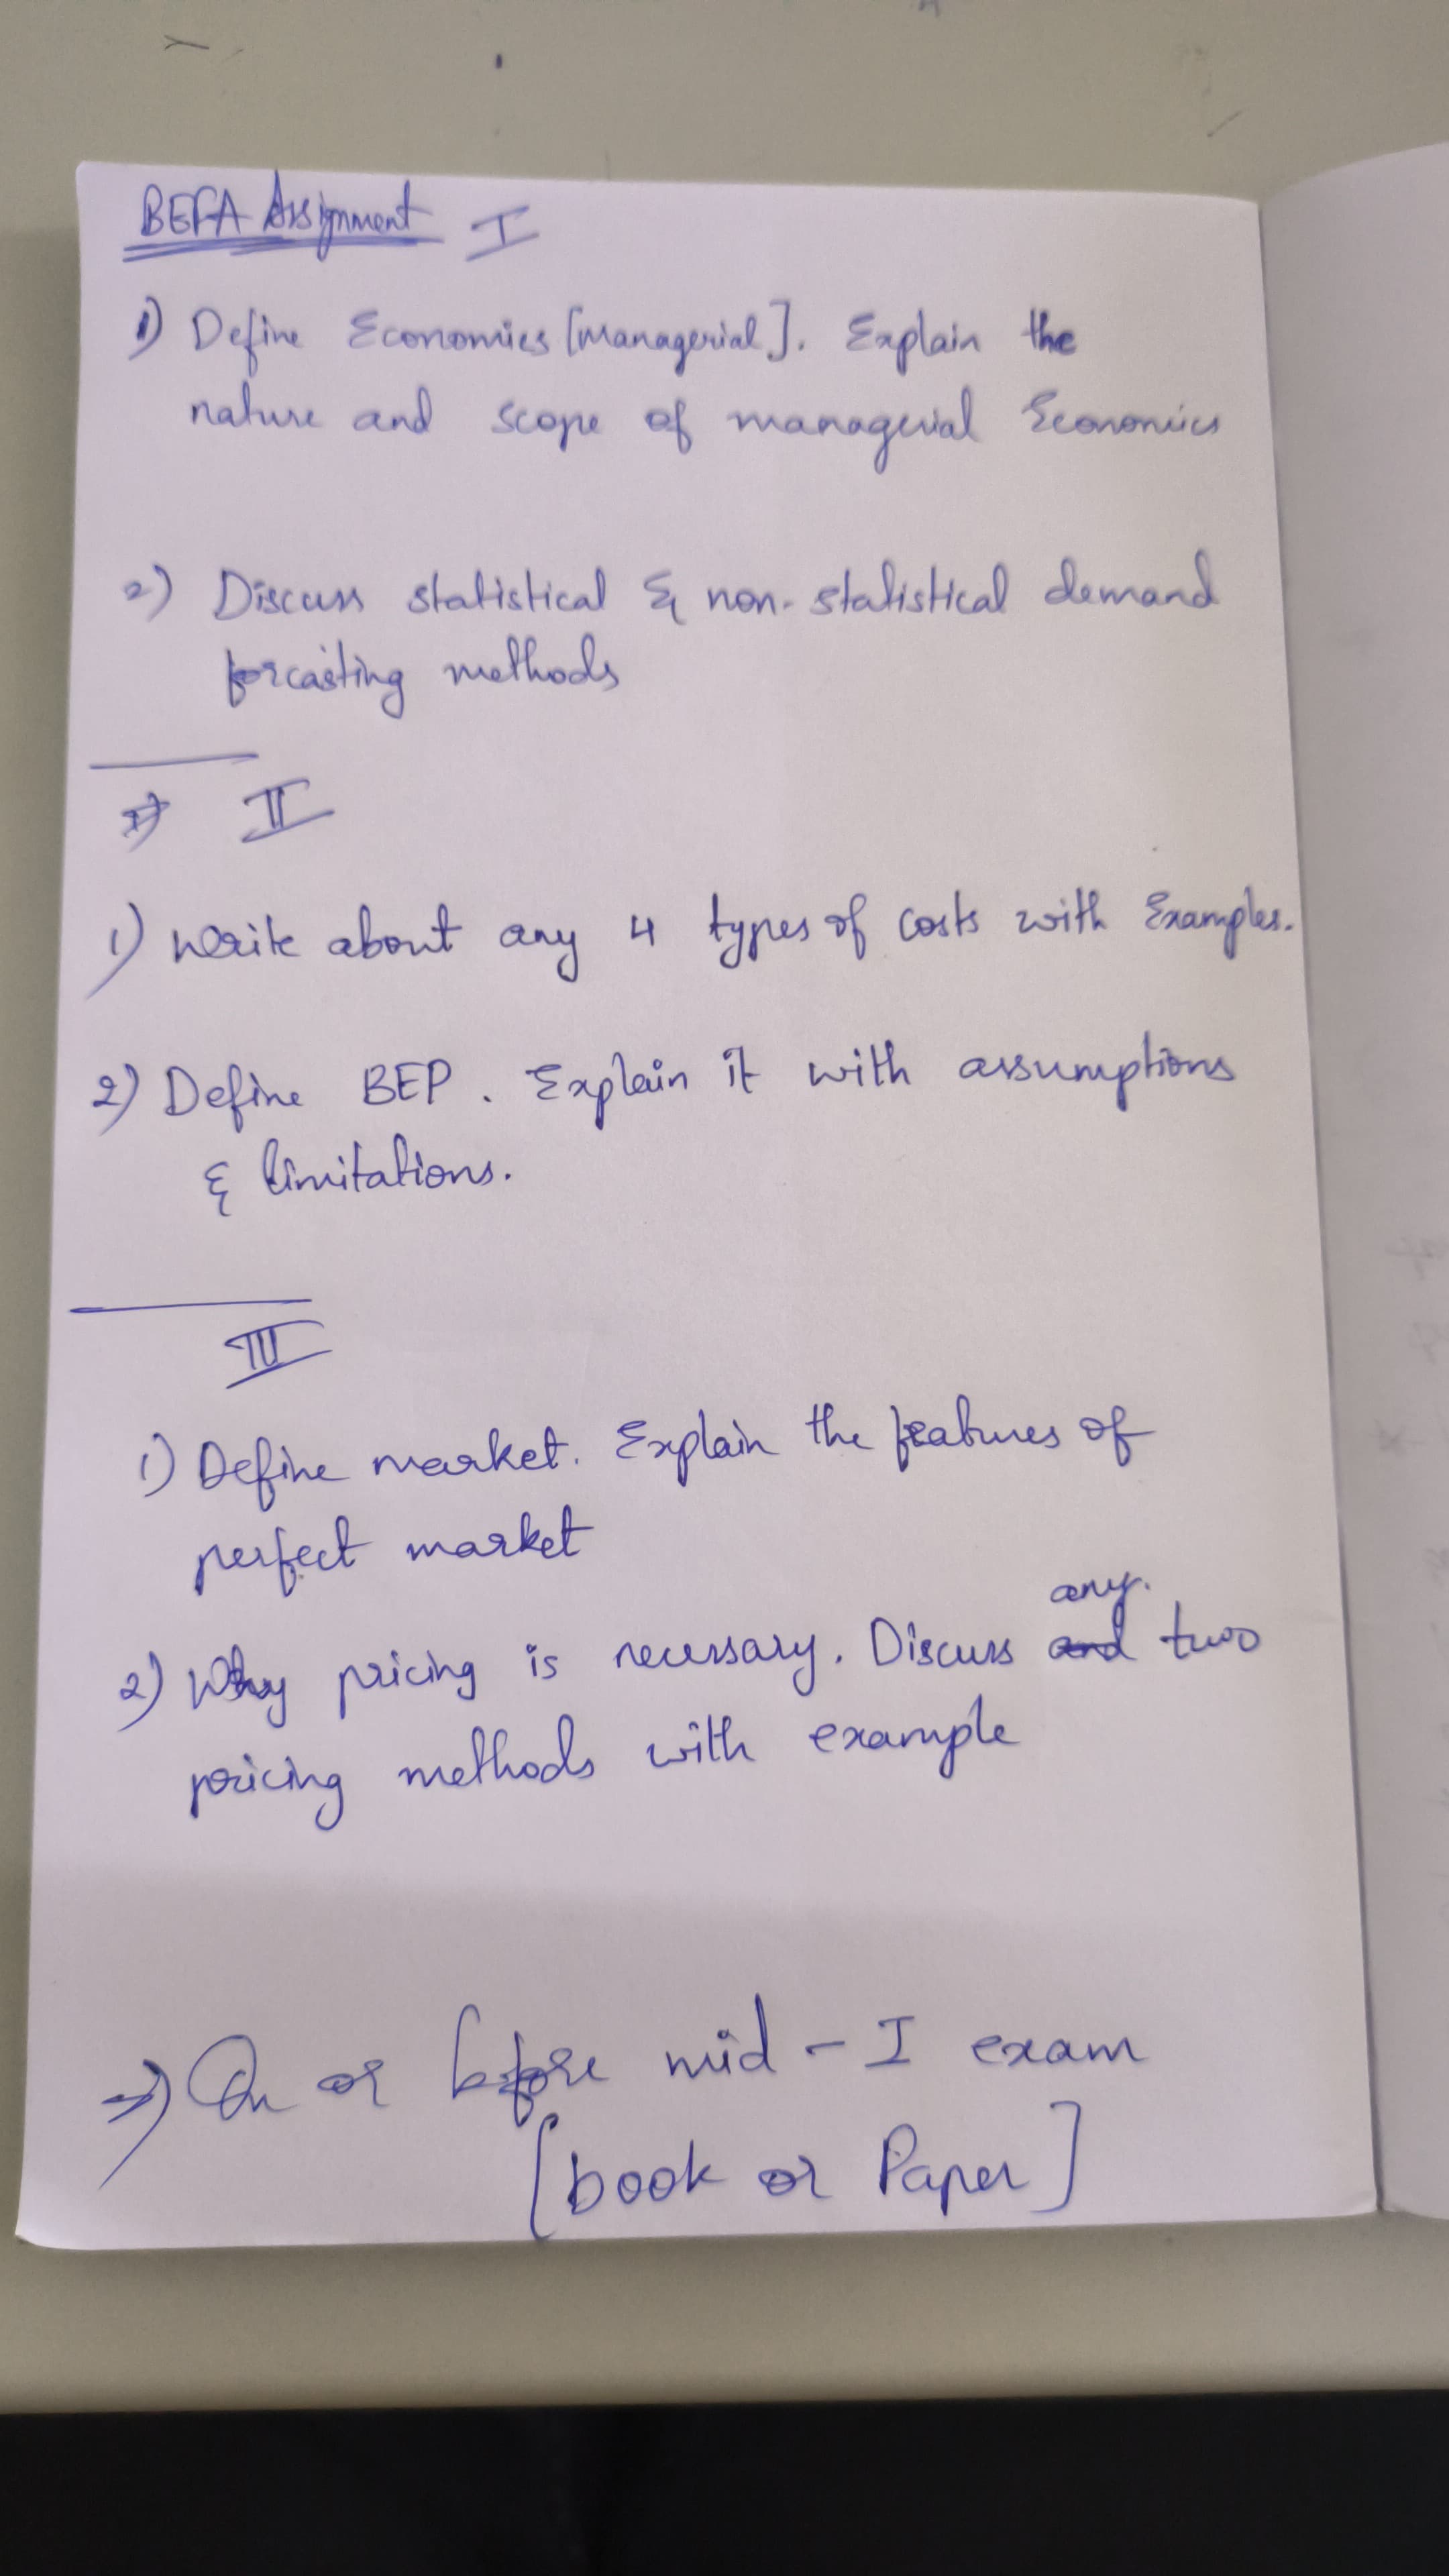 BEFA Assignment I
1) Define Economics [Managerial]. Explain the
nature and scope of managerial Economics
2) Discuss statistical & non-statistical demand
forcasting methods
II
1) Write about any 4 types of costs with Examples.
2) Define BEP. Explain it with assumptions
& limitations.
III
1) Define market. Explain the features of
perfect market
any.
2) Why pricing is necessary. Discuss and two
pricing methods with example
=> On or before mid - I exam
[book or Paper]